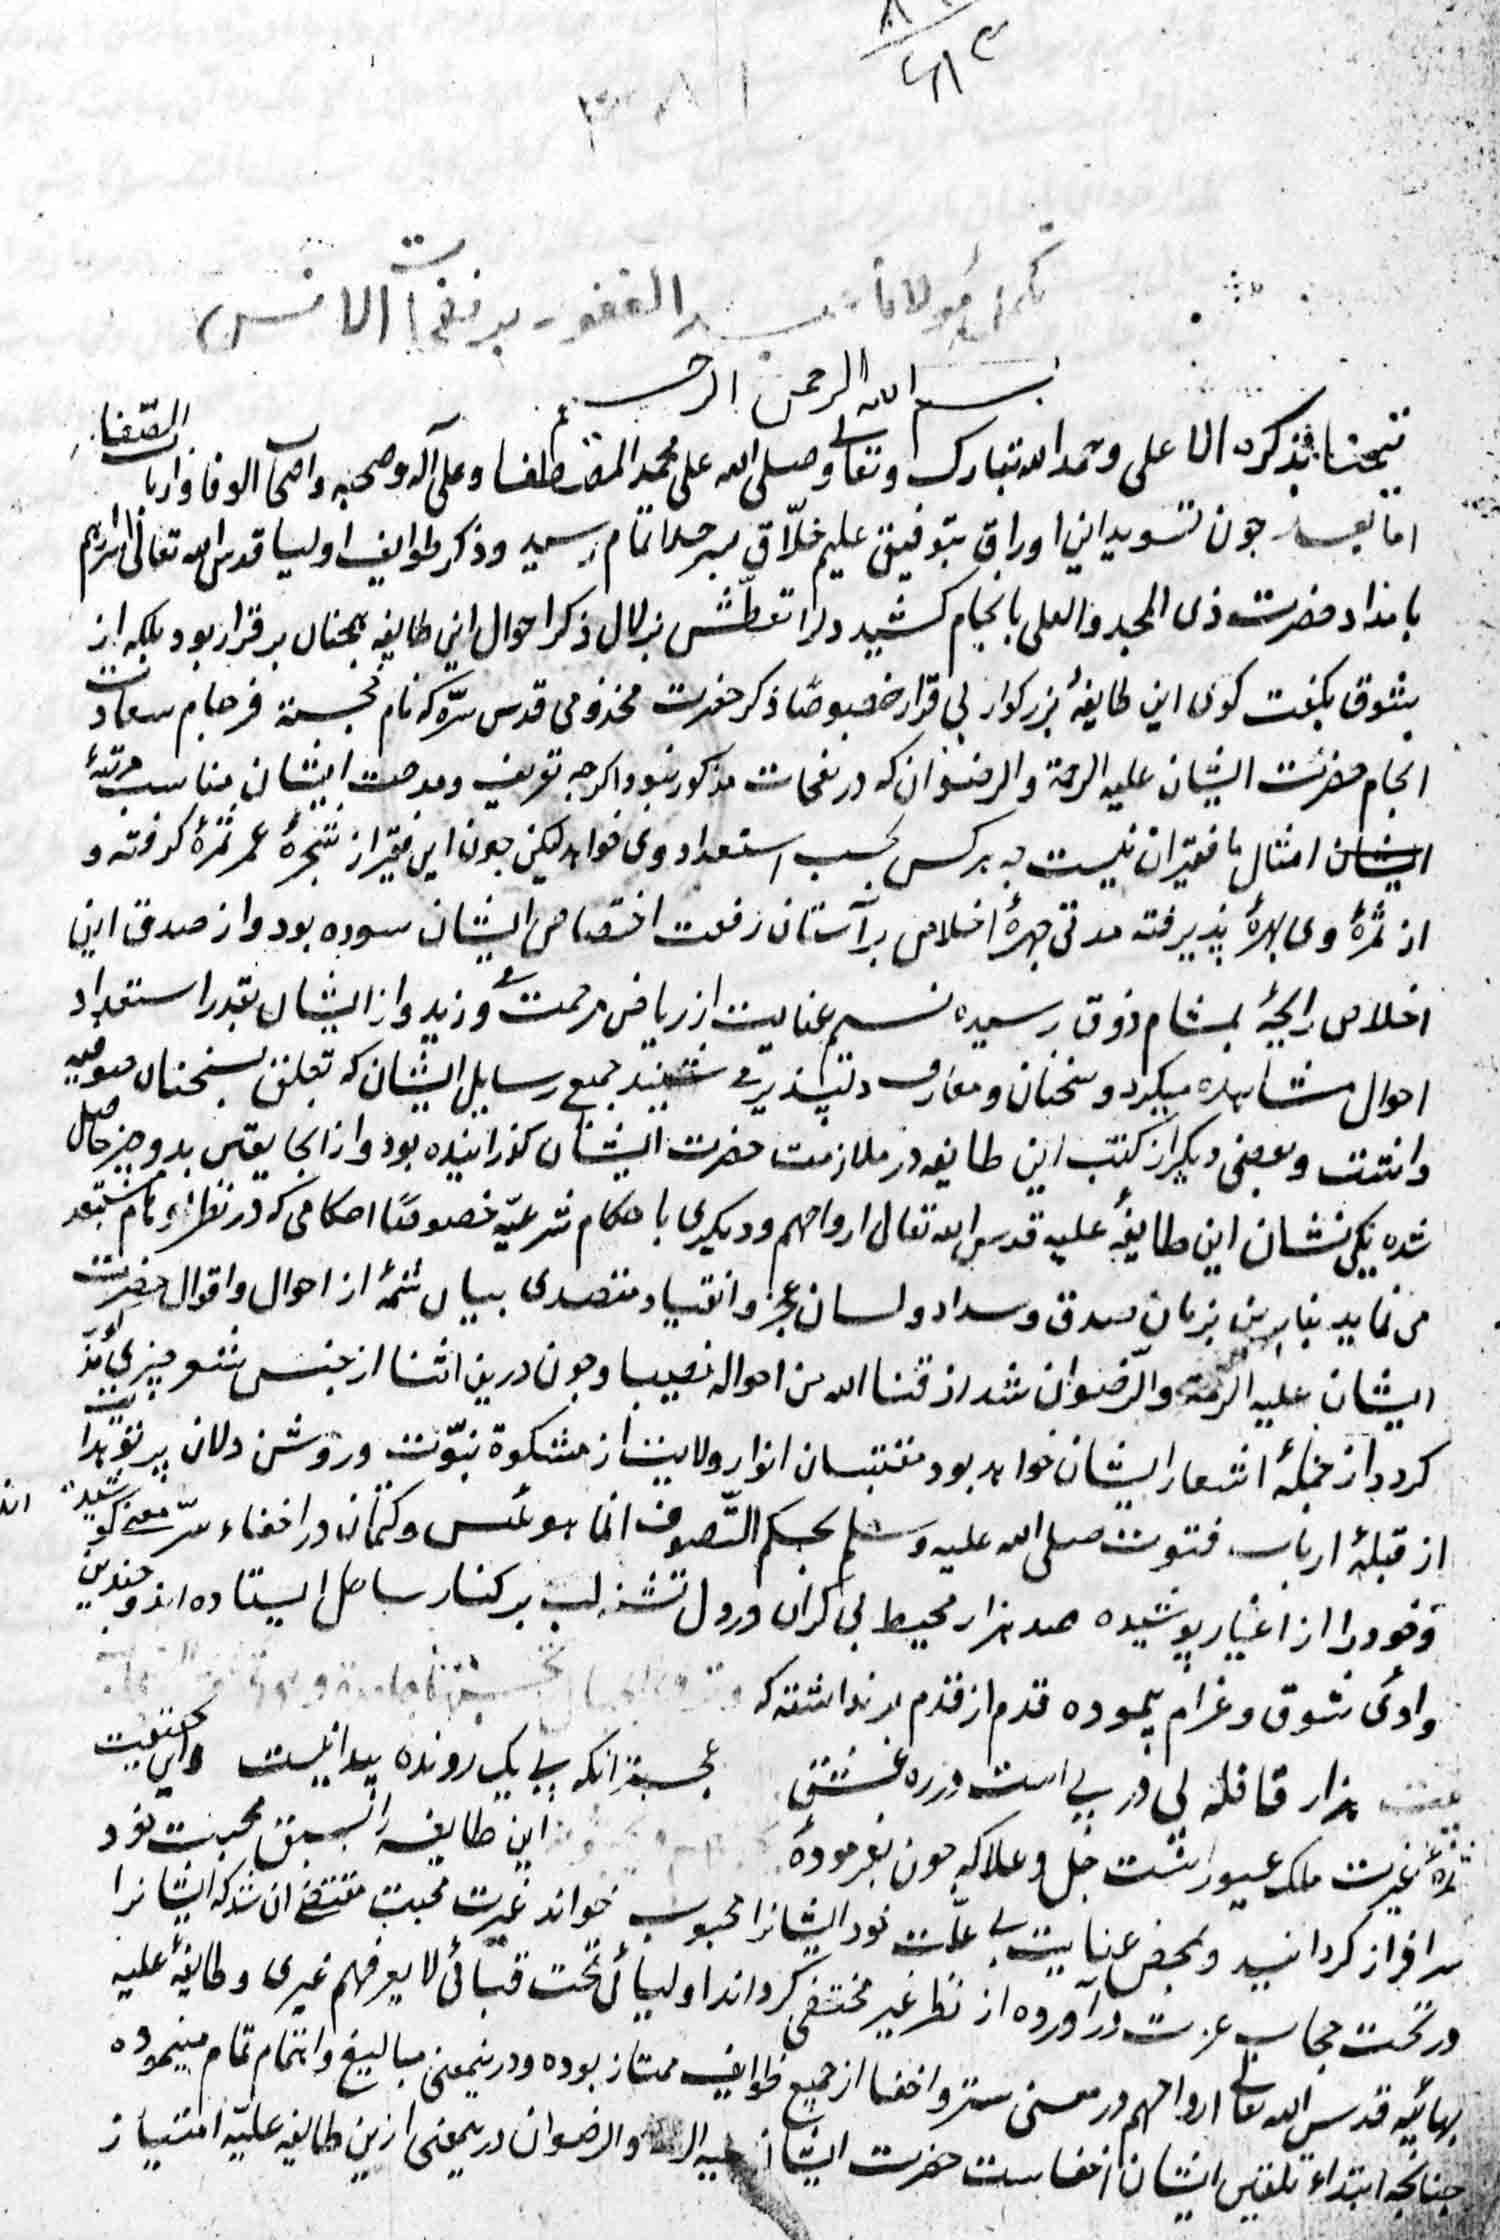 تکملهٔ مولانا عبد الغفور بر نفحات الانس
بسم الله الرحمن الرحیم
تیمنا بذکره الاعلی وحمدا لله تبارک وتعالی وصلی الله علی محمد المصطفا وعلی آله وصحبه واصحاب الوفا وارباب الصفا
اما بعد چون تسوید این اوراق بتوفیق علیم خلاق بسرحد اتمام رسید وذکر طوایف اولیا قدس الله تعالی اسرارهم
بامداد حضرت ذی المجد والعلی بانجام کشید دلرا تعطش بزلال ذکر احوال این طایفه همچنان برقرار بود بلکه از
شوق بکفت کوی این طایفهٔ بزرکوار بی قرار خصوصا ذکر حضرت مخدومی قدس سره که نام خجسته فرجام سعادت
انجام حضرت ایشان علیه الرحمة والرضوان که در نفحات مذکور نبود اکرچه تعریف ومدحت ایشان مناسب مرتبهٔ
ایشان امثال ما فقیران نیست چه هرکس بحسب استعداد وی خواهد لیکن چون این فقیر از شجرهٔ عمر ثمرهٔ کرفته و
از ثمرهٔ وی بهرهٔ پذیرفته مدتی چهرهٔ اخلاص بر آستان رفعت اختصاص ایشان سوده بود واز صدق این
اخلاص رایحهٔ بمشام ذوق رسیده نسیم عنایت از ریاض مرحمت می وزید واز ایشان بقدر استعداد
احوال مشاهده میکرد وسخنان ومعارف دلپذیر می شنید جمیع رسایل ایشان که تعلق بسخنان صوفیه
داشت وبعضی دیکر از کتب این طایفه در ملازمت حضرت ایشان کذرانیده بود واز انجا یقین بدو چیز حاصل
شده یکی نشان این طایفهٔ علیه قدس الله تعالی ارواحهم ودیکری باحکام شرعیه خصوصا احکامی که در نظر عوام مستبعد
می نماید بنابرین بزمان صدق وسداد ولسان عجز وانقیاد متصدی بیان شمهٔ از احوال واقوال حضرت
ایشان علیه الرحمة والرضوان شد اذقنا الله من احواله نصیبا وچون درین اثنا از جنس شعر چیزی
کردد از جملهٔ اشعار ایشان خواهد بود مقتبسان انوار ولایت از مشکوة نبوت وروشن دلان
از قبلهٔ ارباب فتوت صلی الله علیه وسلم بحکم التصوف انما هو تلبس وکتمان در اخفاء سر معنی کوشیده اند
وخود را از اغیار پوشیده صد هزار محیط بی کران در دل تشنه لب بر کنار ساحل ایستاده اند وچندین
وادئ شوق وغرام پیموده قدم از قدم بر نداشته که
بیت هزار قافله پی در پی است در ره عشق عجبتر انکه پی یک رونده پیدا نیست واین بحقیقت
ثمرهٔ غیرت ملک غیور است جل وعلا که چون بفرمودهٔ این طایفه را بسبق محبت خود
سرافراز کردانید وبمحض عنایت بی علت خود ایشانرا محبوب خواند غیرت محبت مقتضی ان شد که ایشانرا
در تحت حجاب عزت درآورده از نظر غیر مختفی کرداند اولیائی تحت قبائی لا یعرفهم غیری وطایفهٔ علیه
بهائیه قدس الله تعالی ارواحهم در معنی ستر واخفا از جمیع طوایف ممتاز بوده ودرینمعنی مبالیغ واهتمام تمام مینموده
چنانچه ابتداء تلقین ایشان اخفاست حضرت ایشان علیه الرحمة والرضوان درینمعنی ازین طایفه علیه امتیاز